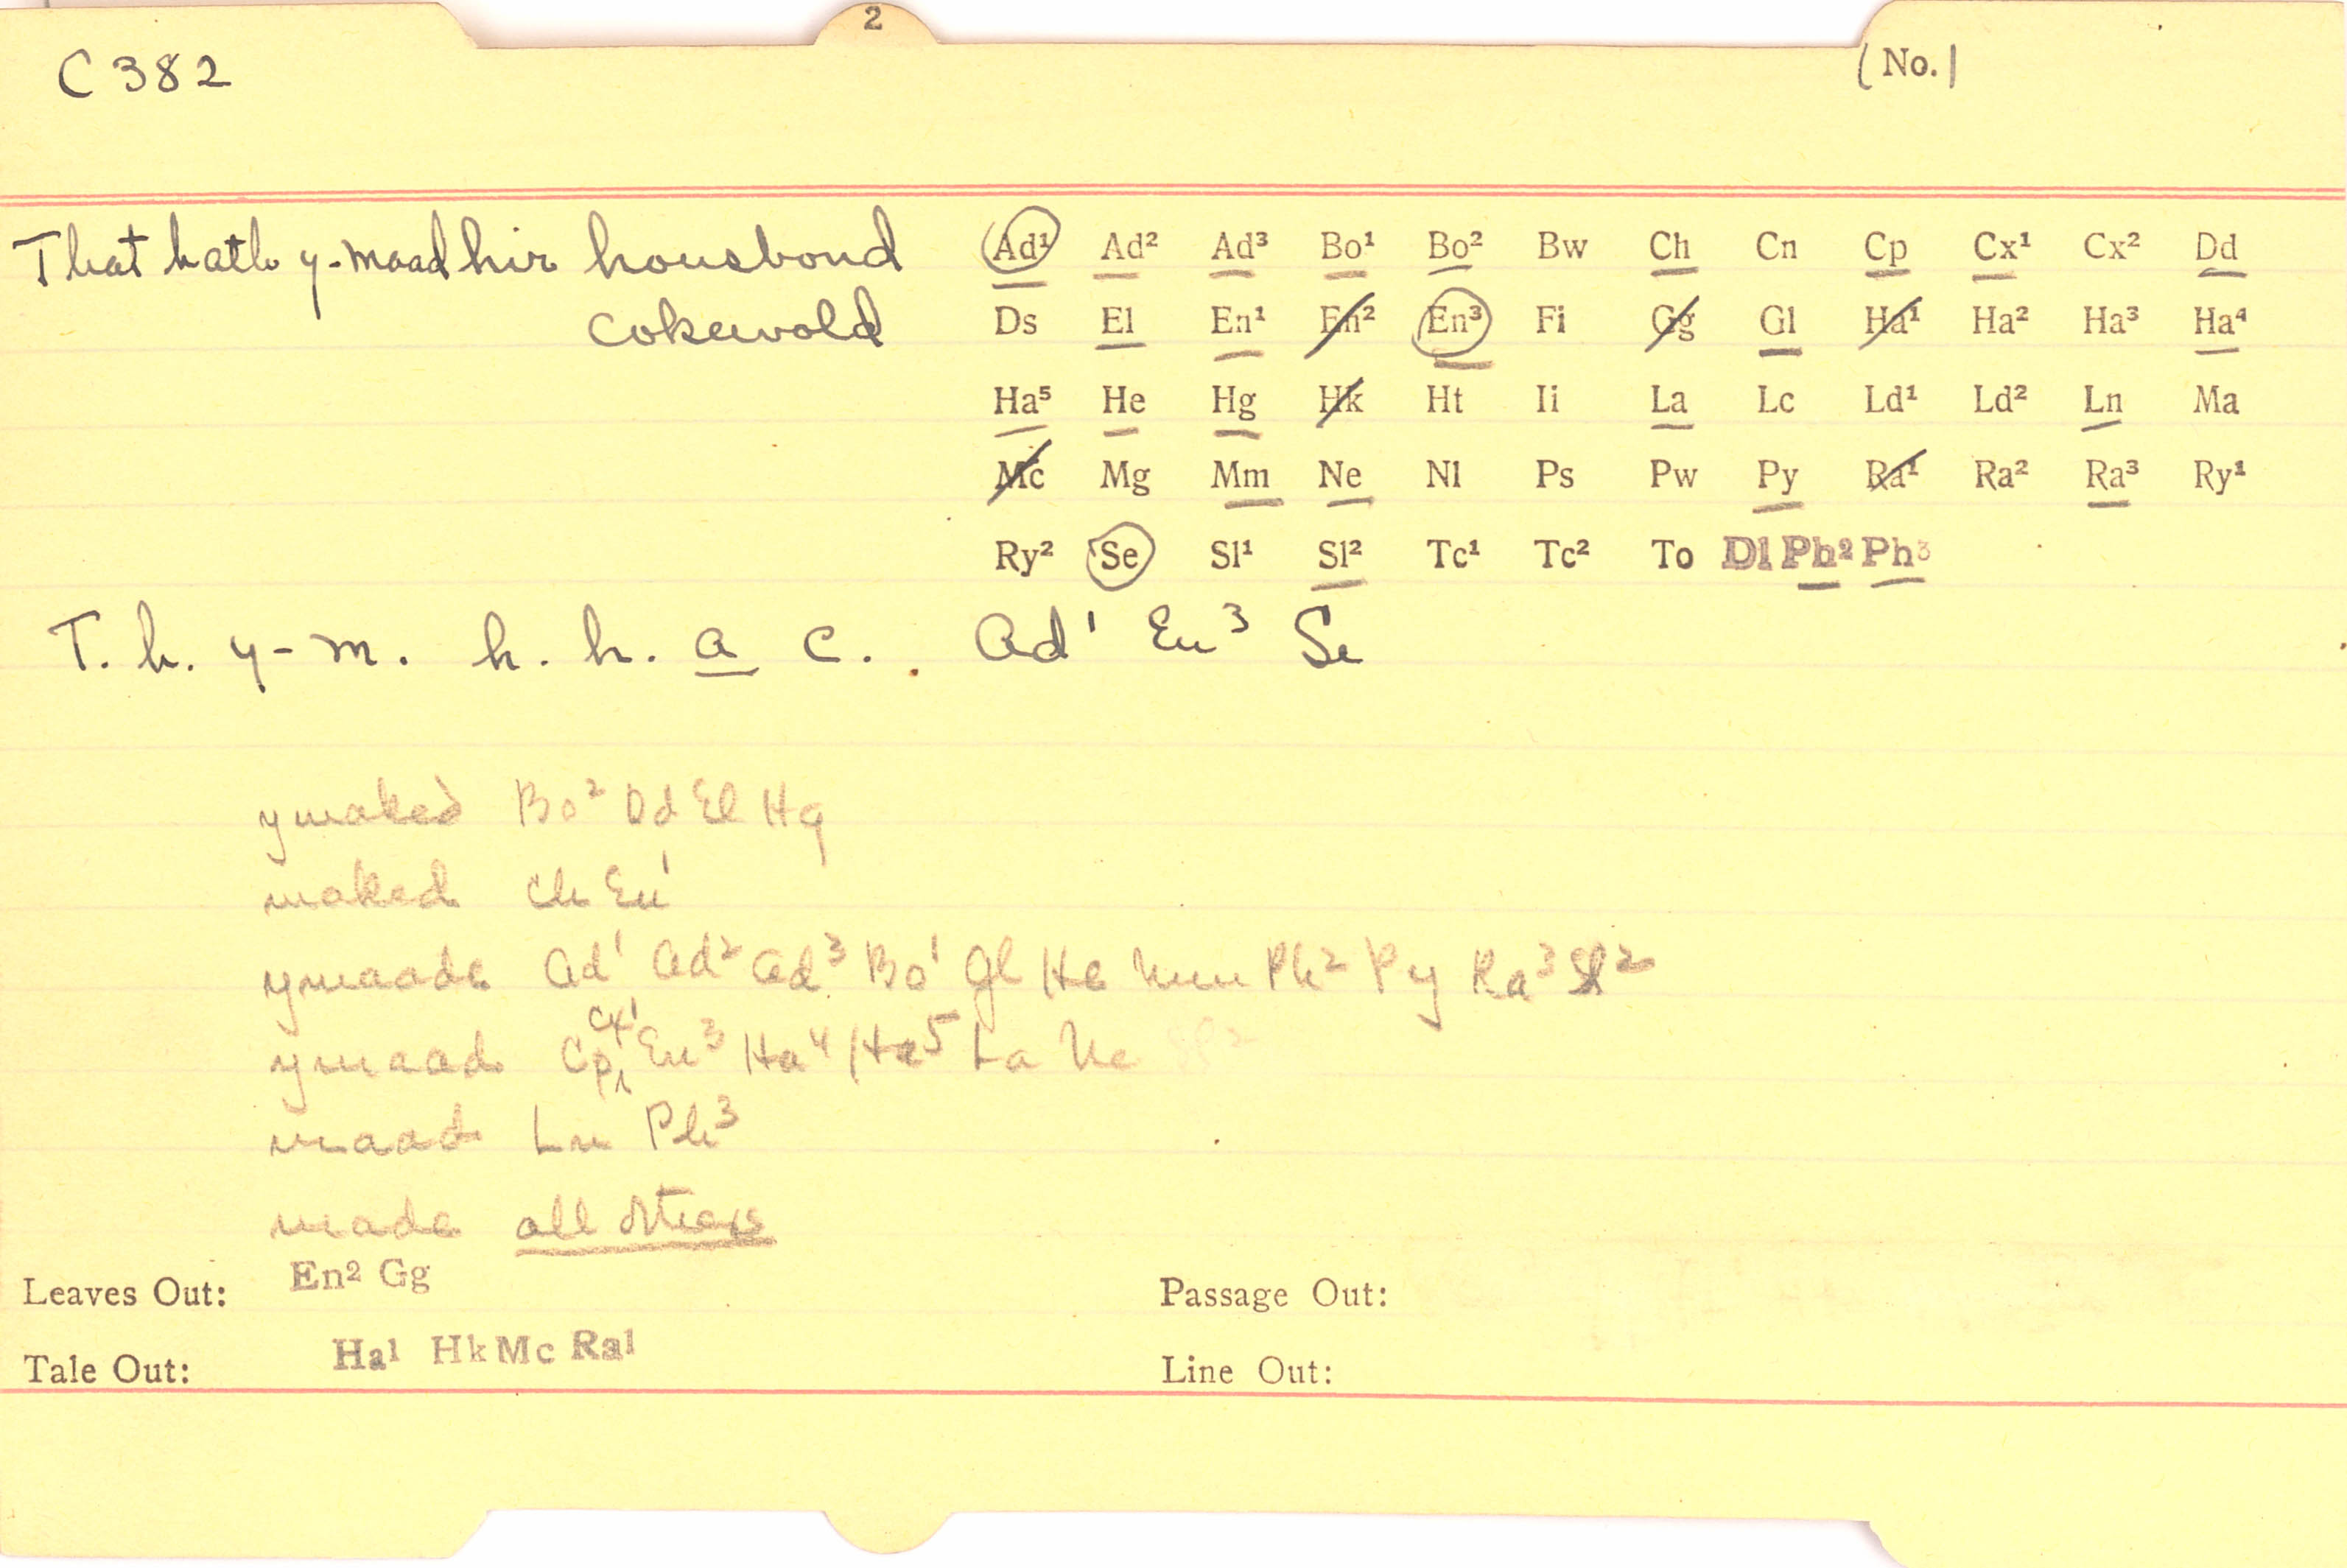 2
C 382
(No.)
That hath y-maad hir housbond
cokewold
Ad¹ Ad² Ad³ Bo¹ Bo² Bw Ch Cn Cp Cx¹ Cx² Dd
Ds El En¹ En² En³ Fi Gg Gl Ha¹ Ha² Ha³ Ha⁴
Ha⁵ He Hg Hk Ht Ii La Lc Ld¹ Ld² Ln Ma
Mc Mg Mm Ne Nl Ps Pw Py Ra¹ Ra² Ra³ Ry¹
Ry² Se Sl¹ Sl² Tc¹ Tc² To Dl Ph² Ph³
T. h. y-m. h. h. a c. Ad¹ En³ Se
ymaked Bo² Dd El Hg
maked Ch En¹
ymaade Ad¹ Ad² Ad³ Bo¹ Gl He Mm Ph² Py Ra³ Sl²
ymaad Cp Cx¹ En³ Ha⁴ Ha⁵ La Ne Sl²
maad Ln Ph³
made all others
Leaves Out: En² Gg
Passage Out:
Tale Out: Ha¹ Hk Mc Ra¹
Line Out: